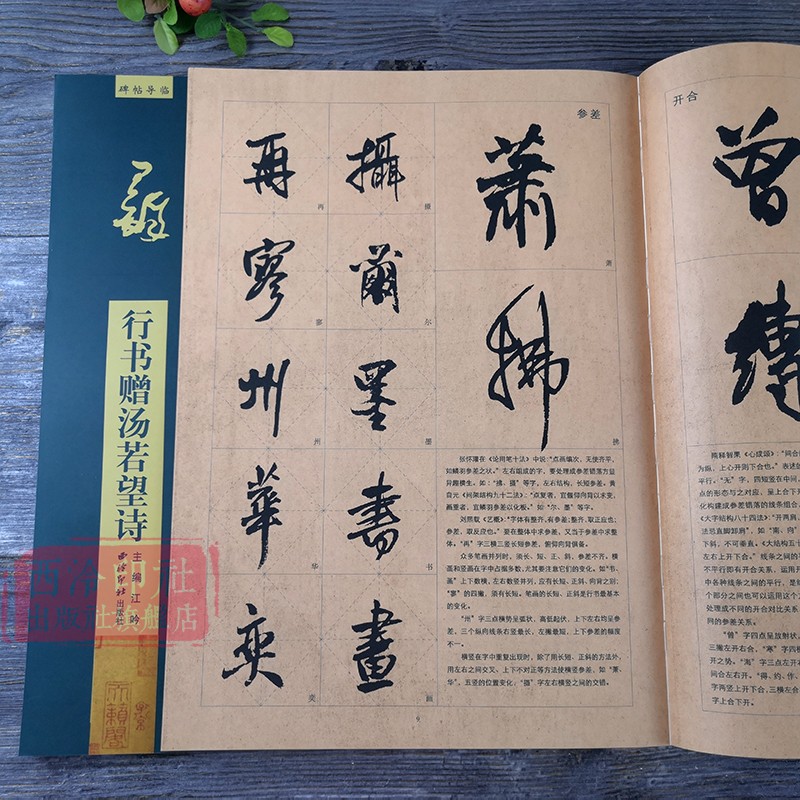 碑帖导临
行书赠汤若望诗
主编 江吟
西泠印社出版社
西泠印社
出版社旗舰店
参差
蕭
萧
拂
拂
攝
摄
爾
尔
墨
墨
書
书
畫
画
再
再
寥
寥
州
州
華
华
奕
奕
张怀瓘在《论用笔十法》中说:“点画编次，无使齐平，
如鳞羽参差之状。”左右组成的字，要处理成参差错落方显
异趣横生。如：“拂、摄”等字，左右结构，长短参差。黄
自元《间架结构九十二法》：“点复者，宜偃仰向背以求变，
画重者，宜鳞羽参差以化板。”如“尔、墨”等字。
刘熙载《艺概》：“字体有整齐，有参差；整齐，取正应也；
参差，取反应也。”要在整体中求参差，又当于参差中求整
体。“再”字三横三竖长短参差，俯仰向背俱备。
众多笔画并列时，须长、短、正、斜，参差不齐。横
画和竖画在字中占据多数，尤其要注意它们的变化。如“书、
画”上下数横，左右数竖并列，应有长短、正斜、向背之别；
“寥”的四撇，须有长短。笔画的长短、正斜是行书最基本
的变化。
“州”字三点横势呈弧状，高低起伏，上下左右均呈参
差，三个纵向线条右竖最长，左撇最短，上下参差的幅度
不一。
横竖在字中重复出现时，除了用长短、正斜的方法外，
用左右之间交叉、上下不对正等方法使横竖参差，如“萧、
华”，五竖的位置变化，“摄”字左右横竖之间的交错。
9
开合
曾
隋释智果《心成颂》：“间合
为扇，上心开则下合也。”表述
平行，“无”字，四短竖在中间，
点的形态与之对应，呈上合下
化构建成参差错落的线条组合
《大字结构八十四法》：“开两肩
法忌直脚卸肩”，如“南、向”
下斜，不可垂直。《大结构五十
左右上开下合。”线条之间的
不平行即有开合关系，运用开
中各种线条之间的平行，是
个部分之间也可以运用这个方
处理成不同的开合对比关系
间的参差关系。
“曾”字四点呈放射状，
三撇左开右合，“寒”字四横
开之势。“海”字三点左开右
间合左右开。“得、约、作、
字再竖上开下合，三横左合
字上合下开。